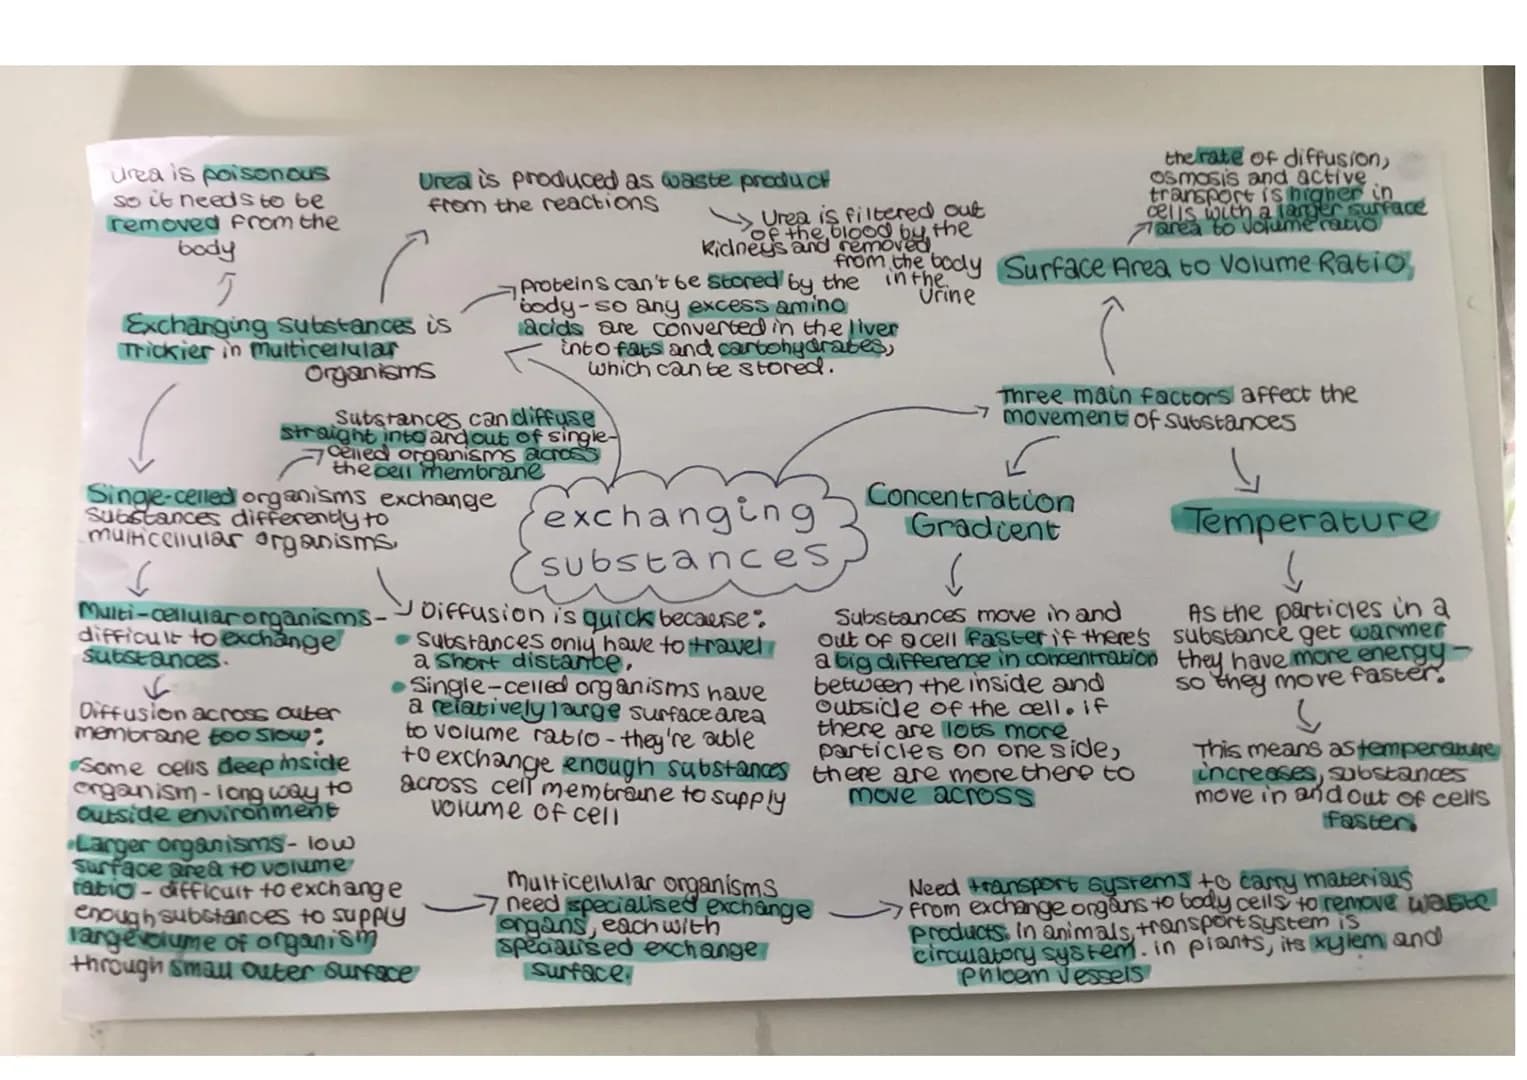 Urea is poisonous
so it needs to be
removed from the
body
Urea is produced as waste product
from the reactions
Urea is filtered out
of the blood by the
kidneys and removed
from the body
in the
Urine
the rate of diffusion,
osmosis and active
transport is higher in
cells with a larger surface
area to volume ratio
Surface Area to Volume Ratio
proteins can't be stored by the
body - so any excess amino
acids are converted in the liver
into fats and carbohydrates,
which can be stored.
Exchanging substances is
Trickier in Multicellular
Organisms
Three main factors affect the
movement of substances
Substances can diffuse
straight into and out of single-
celled organisms across
the cell membrane
Single-celled organisms exchange
substances differently to
multicellular organisms.
exchanging
substances
Concentration
Gradient
Temperature
Multi-cellular organisms-
difficult to exchange
substances.
Diffusion across outer
membrane too slow:
•Some cells deep inside
organism - long way to
outside environment
•Larger organisms- low
surface area to volume
ratio - difficult to exchange
enough substances to supply
large volume of organism
through small outer surface
Diffusion is quick because:
• Substances only have to travel
a short distance,
• Single-celled organisms have
a relatively large surface area
to volume ratio - they're able
to exchange enough substances
across cell membrane to supply
volume of cell
Substances move in and
out of a cell faster if there's
a big difference in concentration
between the inside and
outside of the cell. if
there are lots more
particles on one side,
there are more there to
move across
As the particles in a
substance get warmer
they have more energy -
so they move faster.
This means as temperature
increases, substances
move in and out of cells
faster.
Multicellular organisms
need specialised exchange
organs, each with
specialised exchange
surface.
Need transport systems to carry materials
from exchange organs to body cells to remove waste
products. In animals, transport system is
circulatory system. in plants, its xylem and
phloem vessels